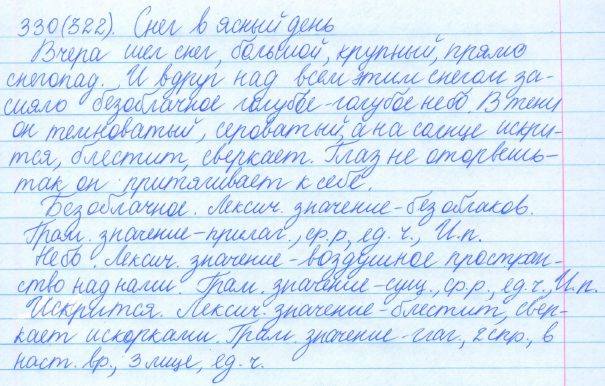 330(322). Снег в ясный день
Вчера шел снег, большой, крупный, прямо
снегопад. И вдруг над всем этим снегом за-
сияло безоблачное голубое-голубое небо. В тени
он темноватый, сероватый, а на солнце искри-
тся, блестит, сверкает. Глаз не оторвешь-
так он притягивает к себе.
Безоблачное. Лексич. значение-без облаков.
Грам. значение-прилаг., ср.р, ед. ч., И.п.
Небо. Лексич. значение-воздушное простран-
ство над нами. Грам. значение-сущ., ср.р., ед.ч., И.п.
Искрится. Лексич. значение-блестит, свер-
кает искорками. Грам. значение-глаг., 2 спр., в
наст. вр., 3 лице, ед. ч.